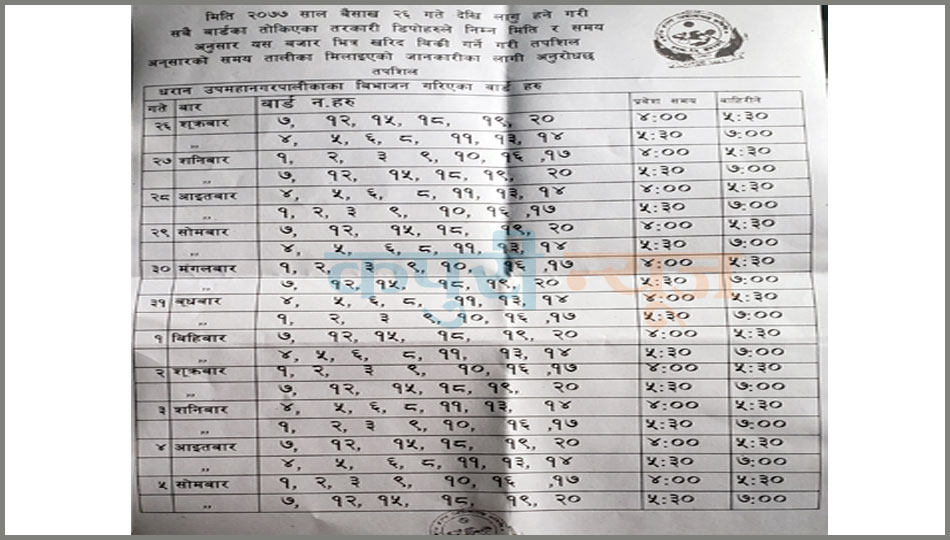 मिति २०७७ साल बैसाख २६ गते देखि लागु हुने गरी
सबै बार्डका तोकिएका तरकारी डिपोहरुले निम्न मिति र समय
अनुसार यस बजार भित्र खरिद बिक्री गर्ने गरी तपशिल
अनुसारको समय तालीका मिलाइएको जानकारीका लागी अनुरोधछ
तपशिल
धरान उपमहानगरपालीकाका बिभाजन गरिएका बार्ड हरु
गते बार बार्ड न.हरु प्रबेश समय बाहिरीने
२६ शुक्रबार ७, १२, १५, १८, १९, २० ४:०० ५:३०
,, ४, ५, ६, ८, ११, १३, १४ ५:३० ७:००
२७ शनिबार १, २, ३ ९, १०, १६ ,१७ ४:०० ५:३०
,, ७, १२, १५, १८, १९, २० ५:३० ७:००
२८ आइतबार ४, ५, ६, ८, ११, १३, १४ ४:०० ५:३०
,, १, २, ३ ९, १०, १६ ,१७ ५:३० ७:००
२९ सोमबार ७, १२, १५, १८, १९, २० ४:०० ५:३०
,, ४, ५, ६, ८, ११, १३, १४ ५:३० ७:००
३० मंगलबार १, २, ३ ९, १०, १६ ,१७ ४:०० ५:३०
,, ७, १२, १५, १८, १९, २० ५:३० ७:००
३१ बुधबार ४, ५, ६, ८, ११, १३, १४ ४:०० ५:३०
,, १, २, ३ ९, १०, १६ ,१७ ५:३० ७:००
१ बिहिबार ७, १२, १५, १८, १९, २० ४:०० ५:३०
,, ४, ५, ६, ८, ११, १३, १४ ५:३० ७:००
२ शुक्रबार १, २, ३ ९, १०, १६ ,१७ ४:०० ५:३०
,, ७, १२, १५, १८, १९, २० ५:३० ७:००
३ शनिबार ४, ५, ६, ८, ११, १३, १४ ४:०० ५:३०
,, १, २, ३ ९, १०, १६ ,१७ ५:३० ७:००
४ आइतबार ७, १२, १५, १८, १९, २० ४:०० ५:३०
,, ४, ५, ६, ८, ११, १३, १४ ५:३० ७:००
५ सोमबार १, २, ३ ९, १०, १६ ,१७ ४:०० ५:३०
,, ७, १२, १५, १८, १९, २० ५:३० ७:००
कपुरी न्यूज